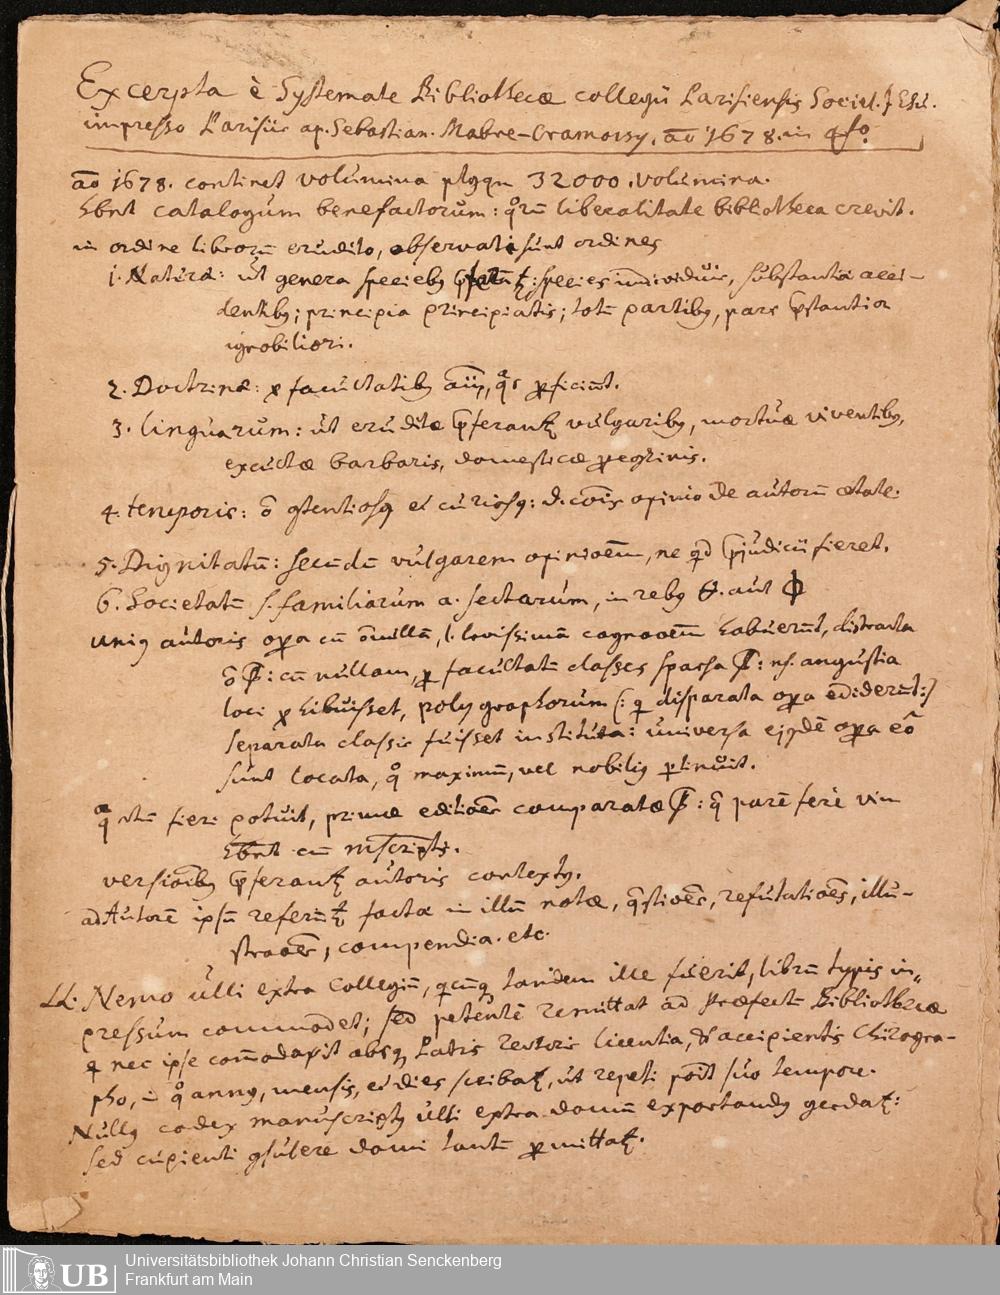 Excerpta è Systemate Bibliothecæ collegii Parisiensis Societ. JEsu.
impresso Parisiis ap. Sebastian. Mabre-Cramoisy. aō 1678. in 4to.
aō 1678. continet volumina 32000. volumina.
Hbnt catalogum benefactorum: qrū liberalitate bibliotheca crevit.
in ordine librorū erudito, observati sunt ordines
1. Naturæ: ut genera speciebꝰ : species individuis, substantia acci-
dentibꝰ; principia principiatis; totū partibꝰ, pars pstantior
ignobiliori.
2. Doctrinæ: facultatibꝰ pficiunt.
3. linguarum: ut eruditæ pferantꝛ vulgaribꝰ, mortuæ viventibꝰ,
excultæ barbaris, domesticæ pegrinis.
4. temporis: et curiosꝰ: opinio de autorū ætate.
5. Dignitatū: secundū vulgarem opinioēm, ne qd pjudicii fieret.
6. Societatū s. familiarum a. sectarum, in rebꝰ aut
uniꝰ autoris opa cū nullā, l. levissimā cognaōem habuerūt, distracta
: cū nullam, p facultatū classes sparsa : ns. angustia
loci phibuisset, polygraphorum (: q disparata opa ediderūt :)
separata classis fuisset instituta: universa ejꝰdē opa eō
sunt locata, qo maximū, vel nobiliꝰ ptinuit.
fieri potuit, primæ editioēs comparatæ : q parē ferè vim
hbnt cū mscriptis.
versioībꝰ pferantꝛ autoris contextꝰ.
ad Autorē ipsū referūtꝛ factæ in illū notæ, qstioēs, refutatioēs, illu-
straōes, compendia. etc.
LL. Nemo ulli extra Collegiū, qcūqꝫ tandem ille fuerit, librū typis im-
pressum commodet; sed petentē remittat ad Præfectū Bibliothecæ
q nec ipse com̄odaxit absqꝫ Patris rectoris licentia, & accipientis Chirogra-
pho, in qo annꝰ, mensis, et dies scribatꝛ, ut repeti poīt suo tempore.
Nullꝰ codex manuscriptꝰ ulli extra domū exportandꝰ :
sed cupienti ꝯsulere domi tantū pmittatꝛ.
Universitätsbibliothek Johann Christian Senckenberg
Frankfurt am Main
UB